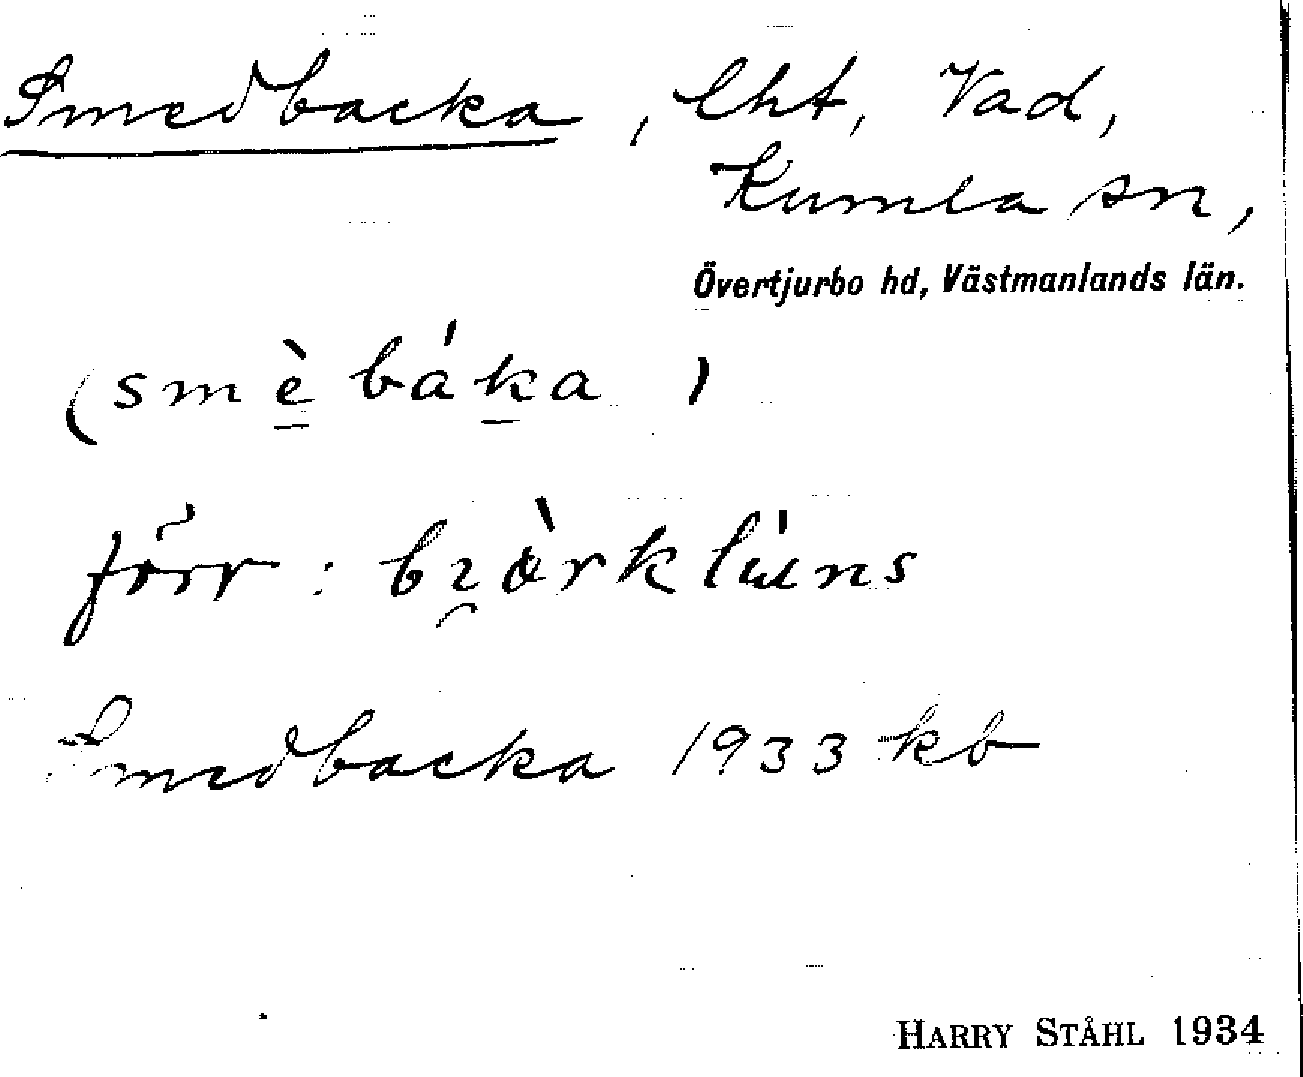 Smedbacka, lht, Vad,
Kumla sn,
Övertjurbo hd, Västmanlands län.
(smè̱ báḵa)
förr: bi̯ òrklúns
Smedbacka 1933 kb
HARRY STÅHL 1934